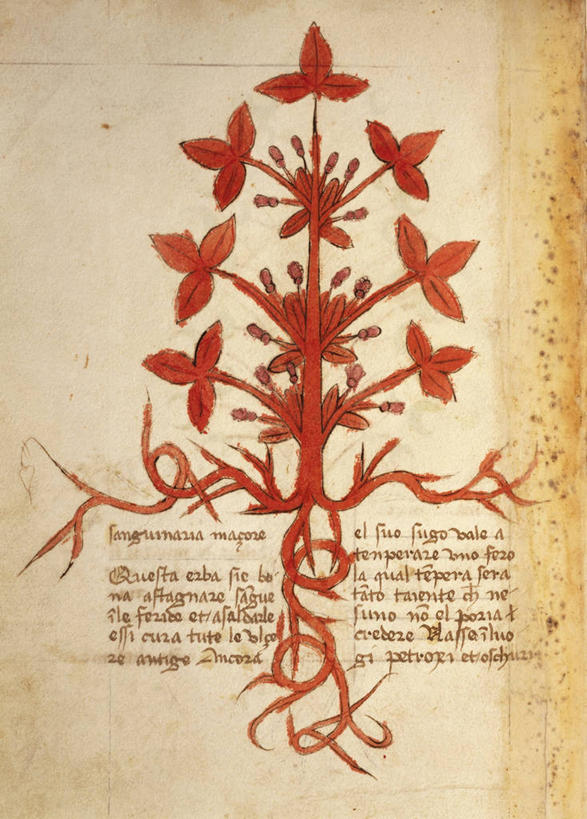 sanguinaria maçore
Questa erba sie bo-
na astagnare sãgue
ĩle feride et asaldarle
essi cura tute le vlçe
re antige Ancora
el suo sugo vale a
tenperare vno fero
la qual tẽpera sera
tãto taiente ch ne-
suno nõ el poria
credere Nasse ĩ luo
gi petroxi et oschuri